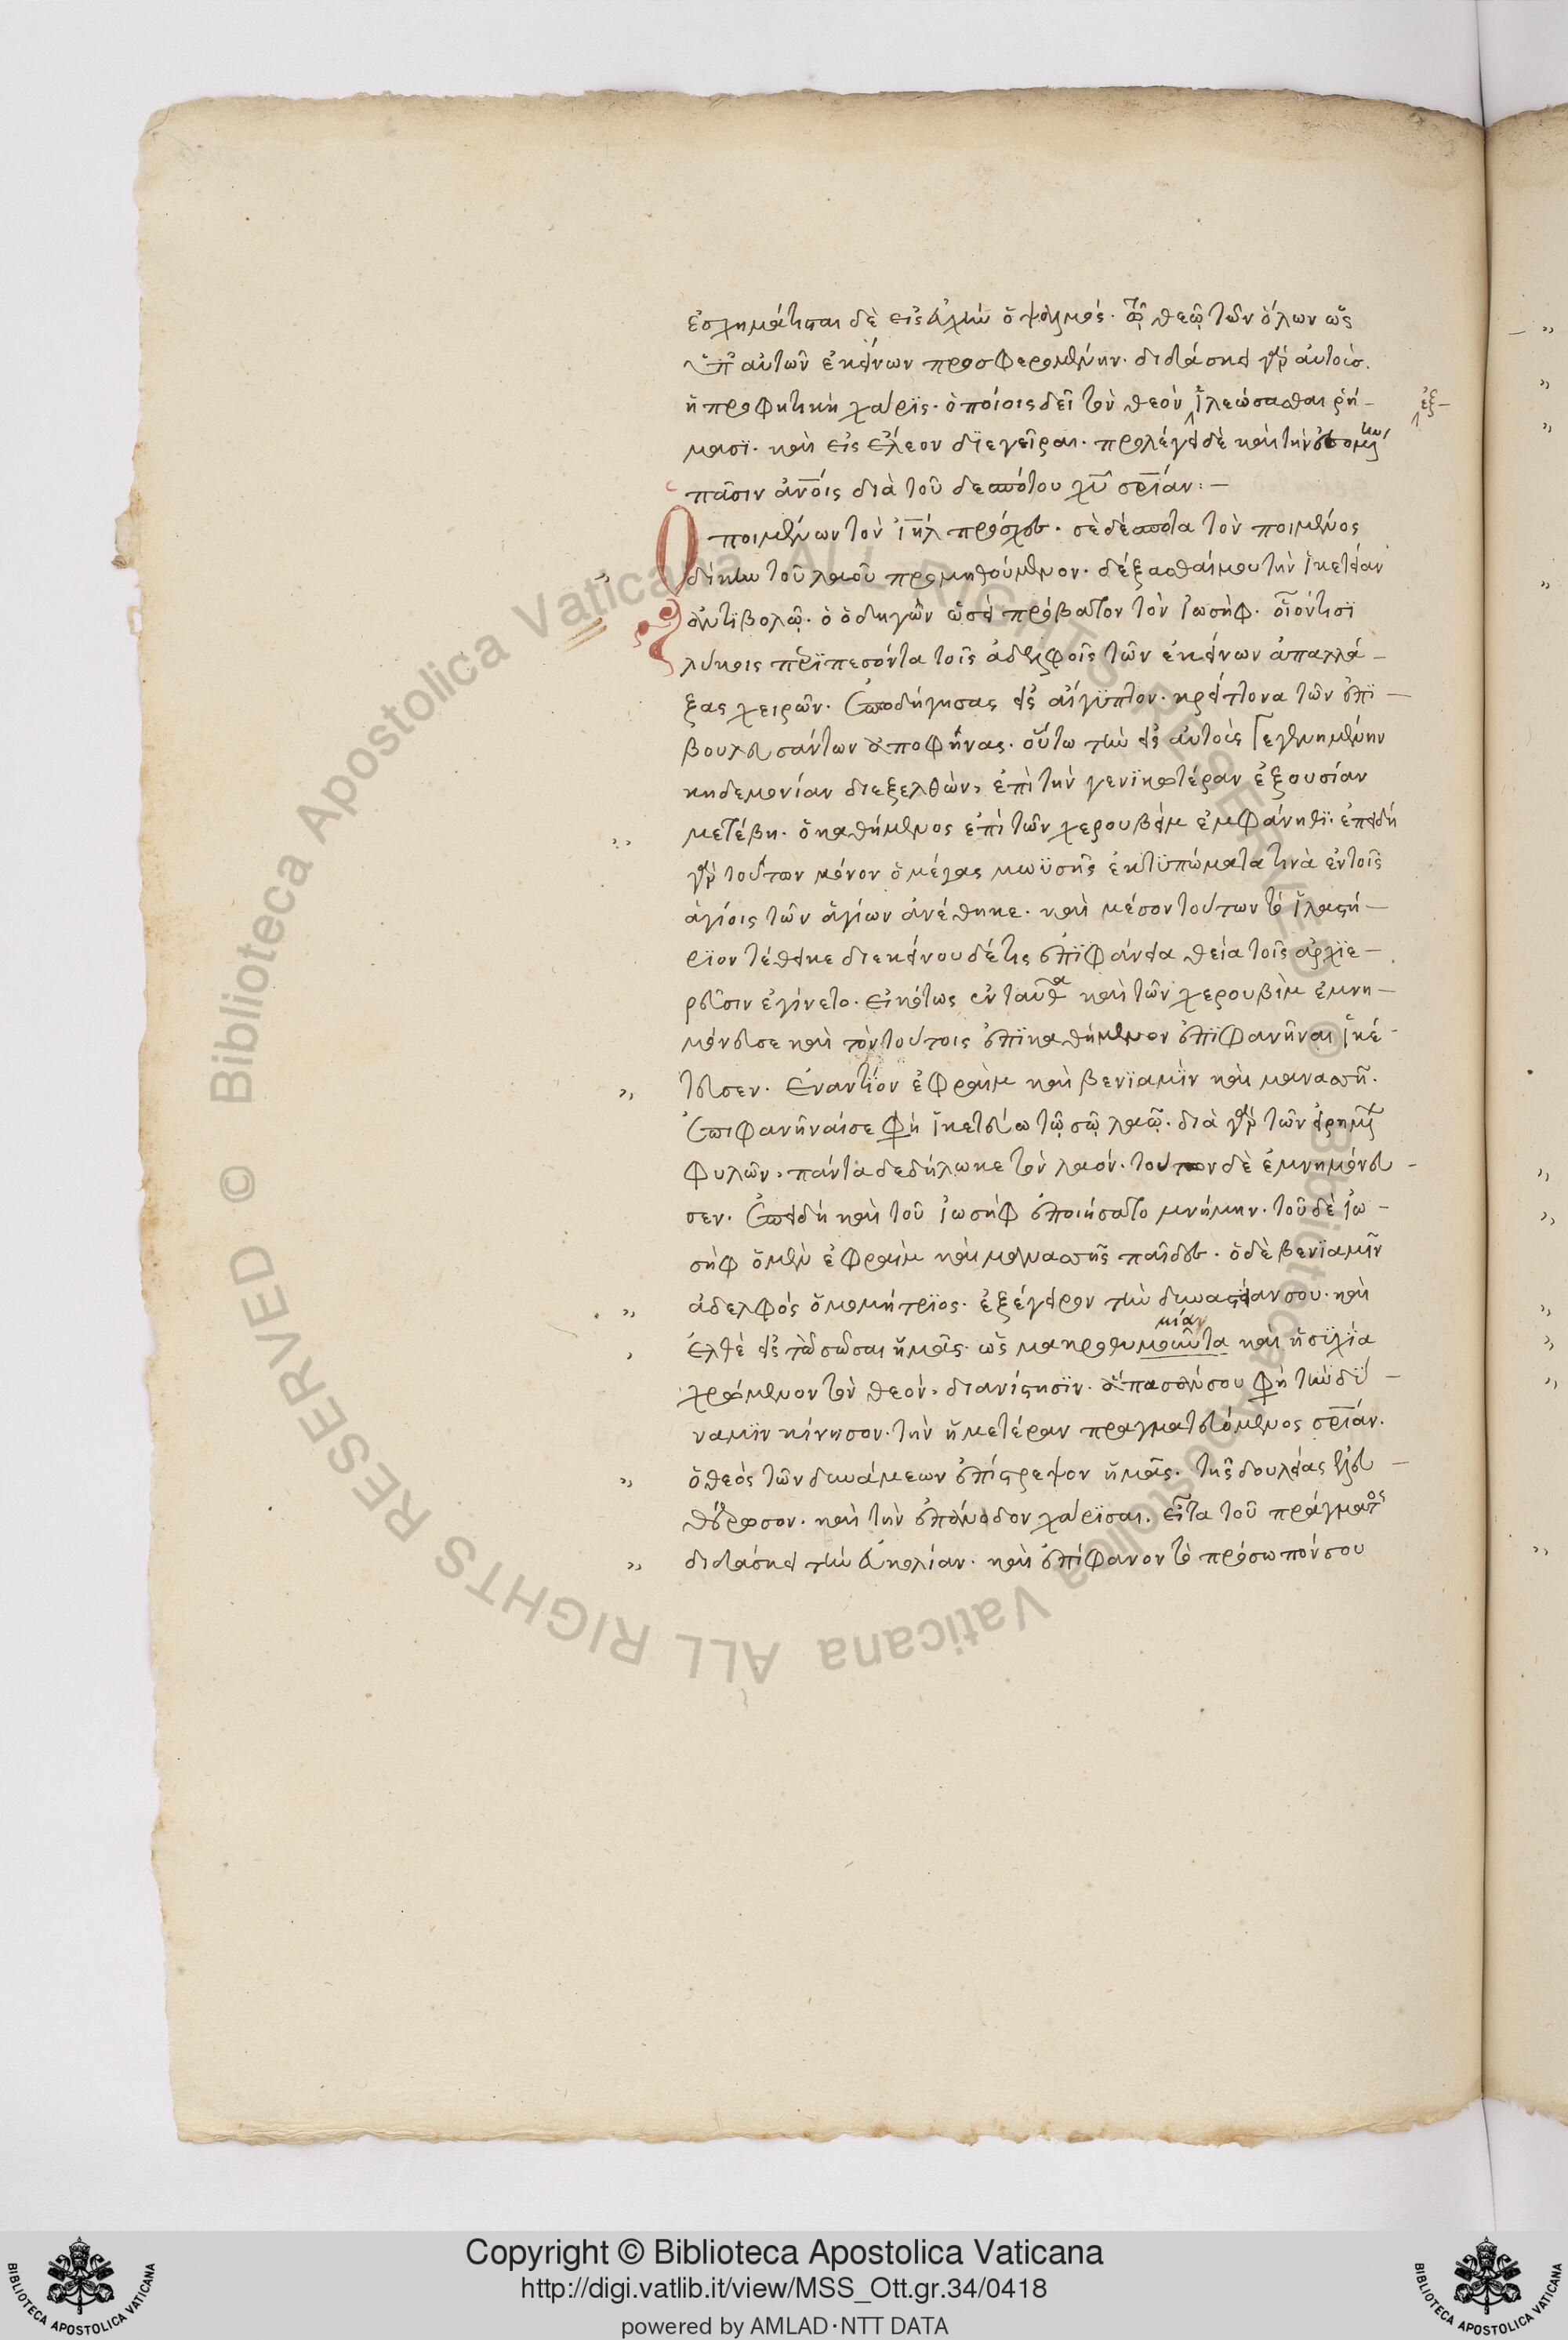 ἐσχημάτισται δὲ εἰς εὐχὴν ὁ ψαλμὸς. τῷ θεῷ τῶν ὅλων ὡς
ὑπ' αὐτῶν ἐκείνων προσφερομένην. διδάσκει γὰρ αὐτοὺσ.
ἡ προφητικὴ χάρϊς. ὁποίοις δεῖ τὸν θεὸν ἱλεώσασθαι ῥή-
μασϊ. καὶ εἰς ἔλεον δϊεγεῖραι. προλέγει δὲ καὶ τὴν ἐσομένην
πᾶσιν ἀνοις διὰ τοῦ δεσπότου χυ σρίαν:—
Ὁ ποιμαίνων τὸν ιηλ πρόσχες. σὲ δέσποτα τὸν ποιμένος
δίκην τοῦ λαοῦ προμηθούμενον. δέξασθαί μου τὴν ἱκετείαν
ἀντϊβολῶ. ὁ ὁδηγῶν ὡσεὶ πρόβατον τὸν ἰωσὴφ. οἱονεί τισϊ
λύκοις περϊπεσόντα τοῖς ἀδελφοῖς τῶν ἐκείνων ἀπαλλά-
ξας χειρῶν. ἐποδήγησας εἰς αἴγυπτον. κρείττονα τῶν ἐπϊ-
βουλευσάντων ἀποφήνας. οὕτω τὴν εἰς αὐτοὺς γεγενημένην
κηδεμονίαν διεξελθὼν, ἐπὶ τὴν γενϊκοτέραν ἐξουσίαν
μετέβη. ὁ καθήμενος ἐπὶ τῶν χερουβεὶμ ἐμφάνηθϊ. ἐπειδὴ
γὰρ τούτων μόνον ὁ μέγας μωϋσῆς ἐκτϋπώματα τινὰ ἐν τοῖς
ἁγίοις τῶν ἁγίων ἀνέθηκε. καὶ μέσον τούτων τὸ ἱλαστή-
ρϊον τέθεικε δι ἐκείνου δέ τις ἐπϊφάνεια θεία τοῖς ἀρχϊε-
ρεῦσιν ἐγίνετο. εἰκότως ἐνταῦθα καὶ τῶν χερουβὶμ ἐμνη-
μόνευσε καὶ τὸν τούτοις ἐπϊκαθήμενον ἐπϊφανῆναι ἱκέ-
τευσεν. Ἐναντίον ἐφραὶμ καὶ βενϊαμὶν καὶ μανασσῆ.
Ἐπιφανῆναί σε φη ἱκετεύω τῷ σῷ λαῷ. διὰ γὰρ τῶν εἰρημένων
φυλῶν, πάντα δεδήλωκε τὸν λαόν. τούτων δὲ ἐμνημόνευ-
σεν. Ἐπειδὴ καὶ τοῦ ἰωσὴφ ἐποιήσατο μνήμην. τοῦ δὲ ἰω-
σὴφ ὁ μὲν ἐφραὶμ καὶ μανασσῆς παῖδες. ὁ δὲ βενϊαμῒν
ἀδελφός ὁμομήτρϊος. ἐξέγειρον τὴν δυναστείαν σου. καὶ
ἐλθὲ εἰς τὸ σῶσαι ἡμᾶς. ὡς μακροθυμοῦντα καὶ ἡσϋχία
μίαν
χρώμενον τὸν θεόν, διανίστησϊν. ἅπασάν σου φη τὴν δύ-
ναμϊν κίνησον. τὴν ἡμετέραν πραγματευόμενος σρίαν.
ὁ θεὸς τῶν δυνάμεων ἐπίστρεψον ἡμᾶς. τῆς δουλείας ἐλευ-
θέρωσον. καὶ τὴν ἐπάνοδον χάρϊσαι. εἶτα τοῦ πράγματος
διδάσκει τὴν εὐκολίαν. καὶ ἐπίφανον τὸ πρόσωπόν σου
ἐξ—
Copyright © Biblioteca Apostolica Vaticana
http://digi.vatlib.it/view/MSS_Ott.gr.34/0418
powered by AMLAD·NTT DATA
© Biblioteca Apostolica Vaticana ALL RIGHTS RESERVED © Biblioteca Apostolica Vaticana ALL RIGHTS RESERVED
BIBLIOTECA APOSTOLICA VATICANA
BIBLIOTECA APOSTOLICA VATICANA